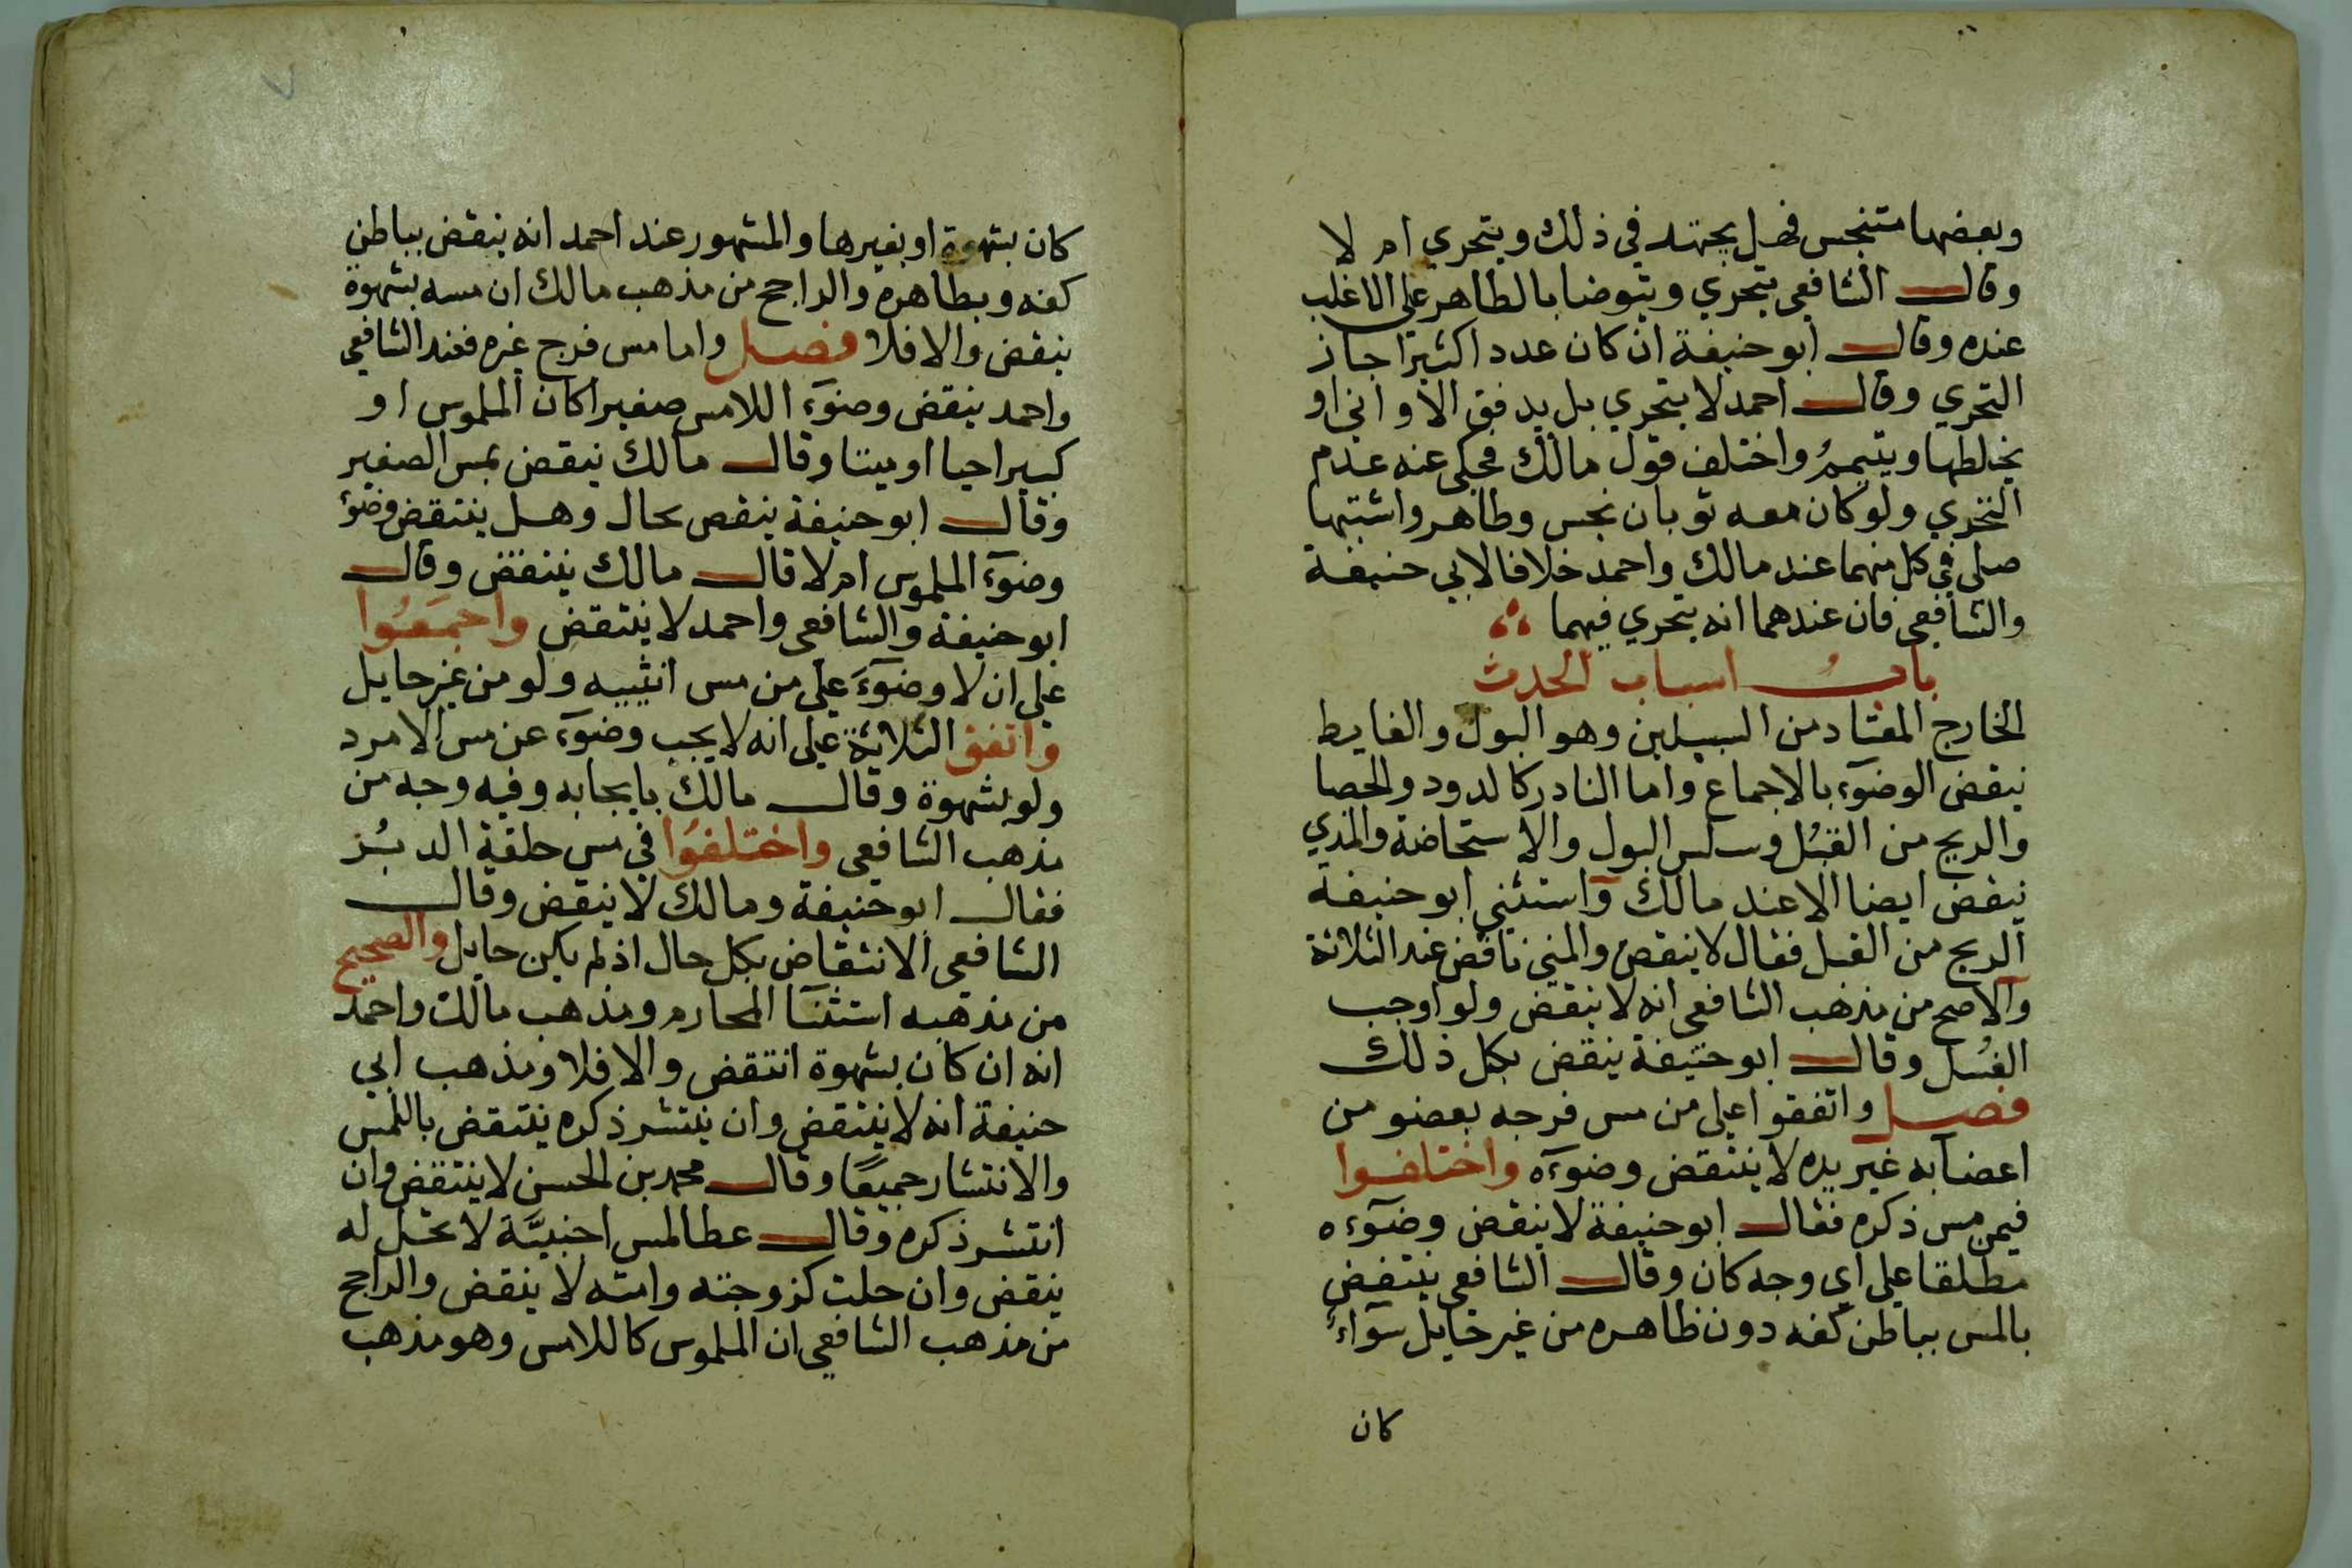 وبعضها متنجس فهل يجتهد في ذلك ويتحري ام لا
وقال الشافعي يتحري ويتوضا بالطاهر علي الاغلب
عنده وقال ابو حنيفة ان كان عدد اكثيرا جاز
التحري وقال احمد لا يتحري بل يدفق الاواني او
يخلطها ويتيمم واختلف قول مالك فحكى عنه عدم
التحري ولو كان معه ثوبان نجس وطاهر واشتبها
صلى في كل منهما عند مالك واحمد خلافا لابي حنيفة
والشافعي فان عندهما انه يتحري فيهما
باب اسباب الحدث
الخارج المعتاد من السبيلين وهو البول والغايط
ينقض الوضوء بالاجماع واما النادر كالدود والحصا
والريح من القبل وسلس البول والاستحاضة والمذي
ينقض ايضا الا عند مالك واستثني ابو حنيفة
الريح من القبل فقال لا ينقض والمني ناقض عند الثلاثة
والاصح من مذهب الشافعي انه لا ينقض ولو اوجب
الغسل وقال ابو حنيفة ينقض بكل ذلك
فصل واتفقوا علي من مس فرجه بعضو من
اعضآبه غير يده لا ينتقض وضوءه واختلفوا
فيمن مس ذكره فقال ابو حنيفة لا ينقض وضوءه
مطلقا علي اي وجه كان وقال الشافعي ينتقض
بالمس بباطن كفه دون ظاهره من غير حايل سوآء
كان
كان بشهوة او بغيرها والمشهور عند احمد انه ينقض بباطن
كفه وبظاهره والراجح من مذهب مالك ان مسه بشهوة
ينقض والا فلا فصل واما مس فرج غيره فعند الشافعي
واحمد ينقض وضوء اللامس صغيرا كان الملموس او
كبيرا حيا او ميتا وقال مالك ينقض بمس الصغير
وقال ابو حنيفة ينقص بحال وهل ينتقض وضوء
وضوء الملموس ام لا قال مالك ينتقض وقال
ابو حنيفة والشافعي واحمد لا ينتقض واجمعوا
علي ان لا وضوء علي من مس انثييه ولو من غير حايل
واتفق الثلاثة علي انه لا يجب وضوء عن مس الامرد
ولو بشهوة وقال مالك بايجابه وفيه وجه من
مذهب الشافعي واختلفوا في مس حلقة الدبر
فقال ابو حنيفة ومالك لا ينقض وقال
الشافعي الانتقاض بكل حال اذ لم يكن حايل والصحيح
من مذهبه استثنآ المحارم ومذهب مالك واحمد
انه ان كان بشهوة انتقض والا فلا ومذهب ابي
حنيفة انه لا ينتقض وان ينتشر ذكره ينتقض باللمس
والانتشار جميعا وقال محمد بن الحسن لا ينتقض وان
انتشر ذكره وقال عطا لمس اجنبية لا تحل له
ينقض وان حلت كزوجته وامته لا ينقض والراجح
من مذهب الشافعي ان الملموس كاللامس وهو مذهب